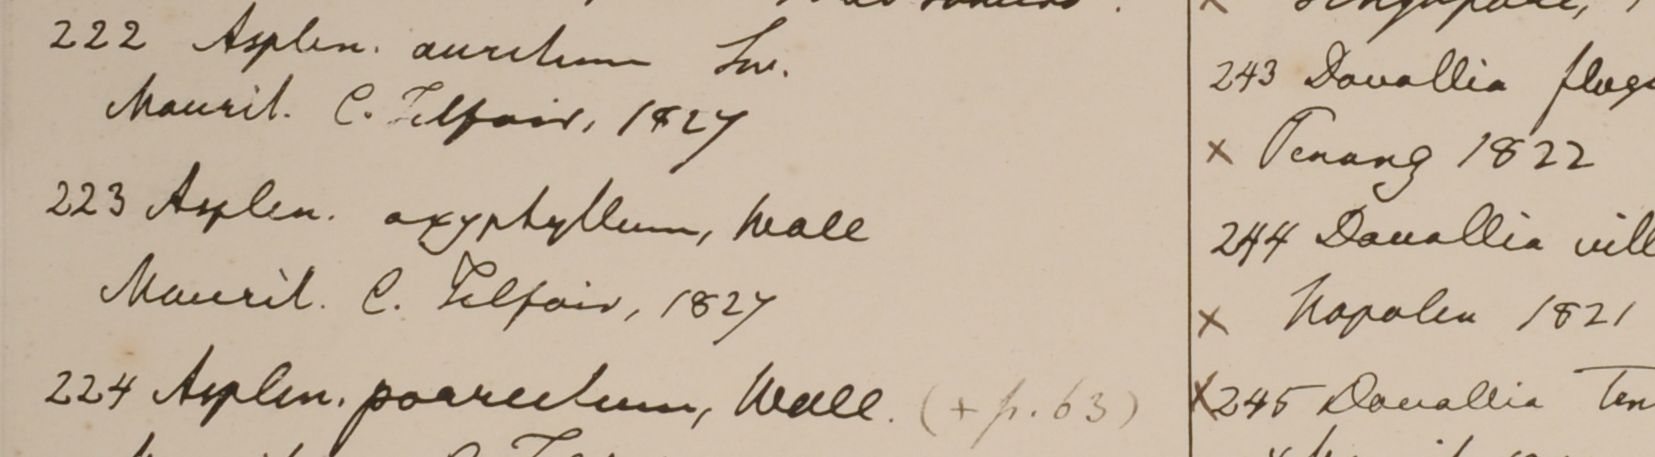 222 Asplen. auritum Sw.
Maurit. C. Telfair, 1827
223 Asplen. oxyphyllum, Wall
Maurit. C. Telfair, 1827
224 Asplen. porrectum, Wall. (+ p. 63)
x Singapore,
243 Davallia
x Penang 1822
244 Davallia vill
x Napalea 1821
x 245 Davallia Ten